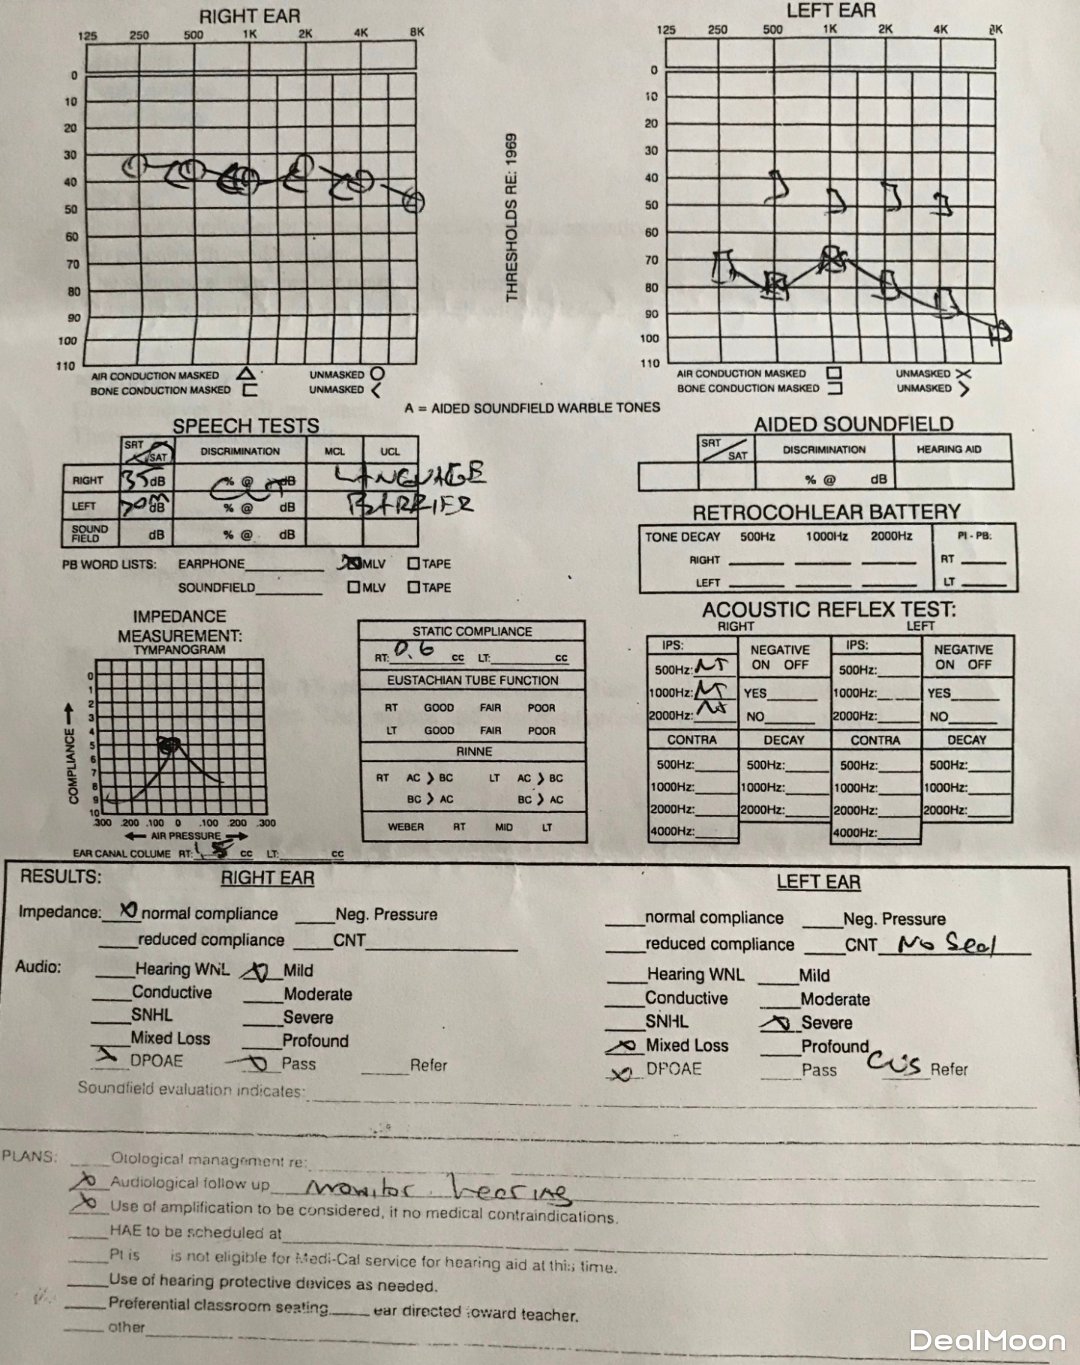 RIGHT EAR
LEFT EAR
125 250 500 1K 2K 4K 8K
125 250 500 1K 2K 4K 8K
0
10
20
30
40
50
60
70
80
90
100
110
THRESHOLDS RE: 1969
0
10
20
30
40
50
60
70
80
90
100
110
AIR CONDUCTION MASKED UNMASKED
BONE CONDUCTION MASKED UNMASKED
AIR CONDUCTION MASKED UNMASKED
BONE CONDUCTION MASKED UNMASKED
A = AIDED SOUNDFIELD WARBLE TONES
SPEECH TESTS
SRT SAT DISCRIMINATION MCL UCL
RIGHT 35 dB % @ dB LANGUAGE
LEFT dB % @ dB BARRIER
SOUND FIELD dB % @ dB
PB WORD LISTS: EARPHONE MLV TAPE
SOUNDFIELD MLV TAPE
AIDED SOUNDFIELD
SRT SAT DISCRIMINATION HEARING AID
% @ dB
RETROCOHLEAR BATTERY
TONE DECAY 500Hz 1000Hz 2000Hz PI - PB:
RIGHT RT
LEFT LT
IMPEDANCE
MEASUREMENT:
TYMPANOGRAM
COMPLIANCE
0
1
2
3
4
5
6
7
8
9
10
.300 .200 .100 0 .100 .200 .300
AIR PRESSURE
EAR CANAL COLUME RT: 1.5 cc LT: cc
STATIC COMPLIANCE
RT: 0.6 cc LT: cc
EUSTACHIAN TUBE FUNCTION
RT GOOD FAIR POOR
LT GOOD FAIR POOR
RINNE
RT AC > BC LT AC > BC
BC > AC BC > AC
WEBER RT MID LT
ACOUSTIC REFLEX TEST:
RIGHT LEFT
IPS: NEGATIVE IPS: NEGATIVE
ON OFF ON OFF
500Hz: NT 500Hz:
1000Hz: NT YES 1000Hz: YES
2000Hz: NT NO 2000Hz: NO
CONTRA DECAY CONTRA DECAY
500Hz: 500Hz: 500Hz: 500Hz:
1000Hz: 1000Hz: 1000Hz: 1000Hz:
2000Hz: 2000Hz: 2000Hz: 2000Hz:
4000Hz: 4000Hz:
RESULTS: RIGHT EAR LEFT EAR
Impedance: normal compliance Neg. Pressure normal compliance Neg. Pressure
reduced compliance CNT reduced compliance CNT No Seal
Audio: Hearing WNL Mild Hearing WNL Mild
Conductive Moderate Conductive Moderate
SNHL Severe SNHL Severe
Mixed Loss Profound Mixed Loss Profound
DPOAE Pass Refer DPOAE Pass Refer
Soundfield evaluation indicates:
PLANS: Otological management re:
Audiological follow up monitor hearing
Use of amplification to be considered, if no medical contraindications.
HAE to be scheduled at
Pt is is not eligible for Medi-Cal service for hearing aid at this time.
Use of hearing protective devices as needed.
Preferential classroom seating ear directed toward teacher.
other
DealMoon